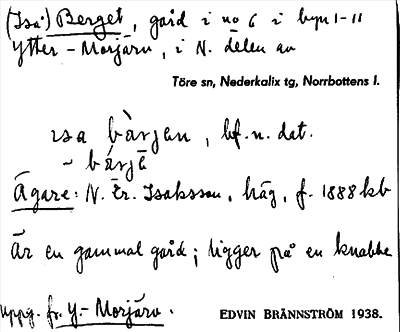 (Isa) Berget, gård i no 6 i byn 1-11
Ytter-Morjärv, i N. delen av
Töre sn, Nederkalix tg, Norrbottens l.
ɩsa bàrjen, bf. n. dat.
~ bárjē
Ägare: N. Er. Isaksson, häg, f. 1888 kb
Är en gammal gård; ligger på en knabbe
Uppg. fr. Y.-Morjärv.
EDVIN BRÄNNSTRÖM 1938.